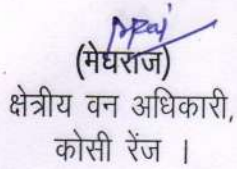 (मेघराज)
क्षेत्रीय वन अधिकारी,
कोसी रेंज ।